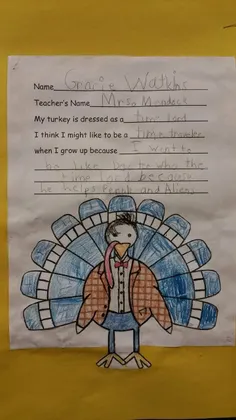 Name Gracie Watkins
Teacher's Name Mrs. Mendeck
My turkey is dressed as a time lord
I think I might like to be a time traveler
when I grow up because I want to
be like Doctor who the
time lord because
he helps People and Aliens